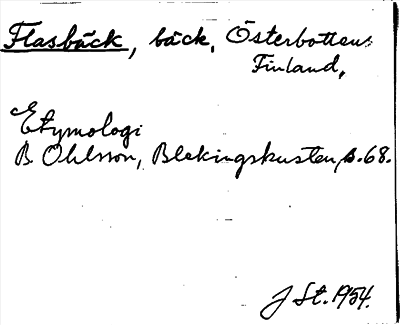 Flasbäck, bäck, Österbotten,
Finland,
Etymologi
B. Ohlsson, Blekingskusten, s. 68.
J St. 1954.